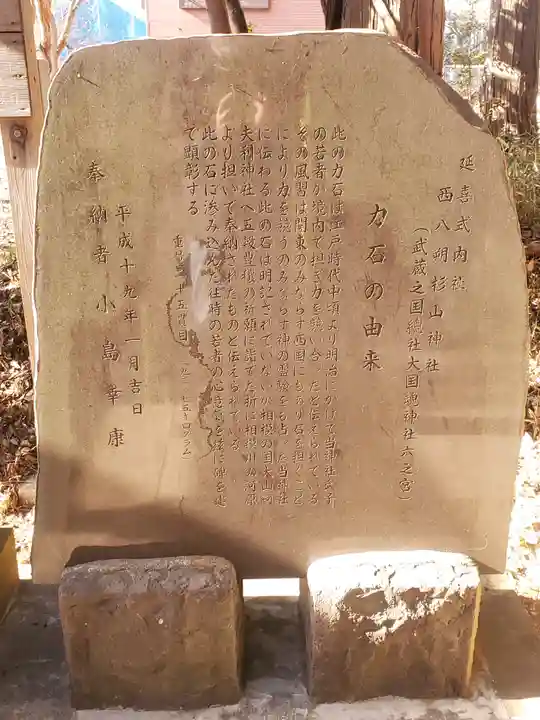 延喜式内社
西八朔杉山神社
(武蔵之国總社大国魂神社六之宮)
力石の由来
此の力石は江戸時代中頃より明治にかけて当神社氏子
の若者が境内で担ぎ力を競い合ったと伝えられている
その風習は関東のみならず西国にもあり石を担ぐこと
により力を競うのみならず神の霊験をも占った当神社
に伝わる此の石は明記されていないが相模の国大山阿
夫利神社へ五穀豊穣の祈願に詣でた折に相模川の河原
より担いで奉納されたものと伝えられている
此の石に滲み込んだ往時の若者の心意気を後に碑を建
て顕彰する
十五貫目
平成十九年一月吉日
奉納者 小島幸康